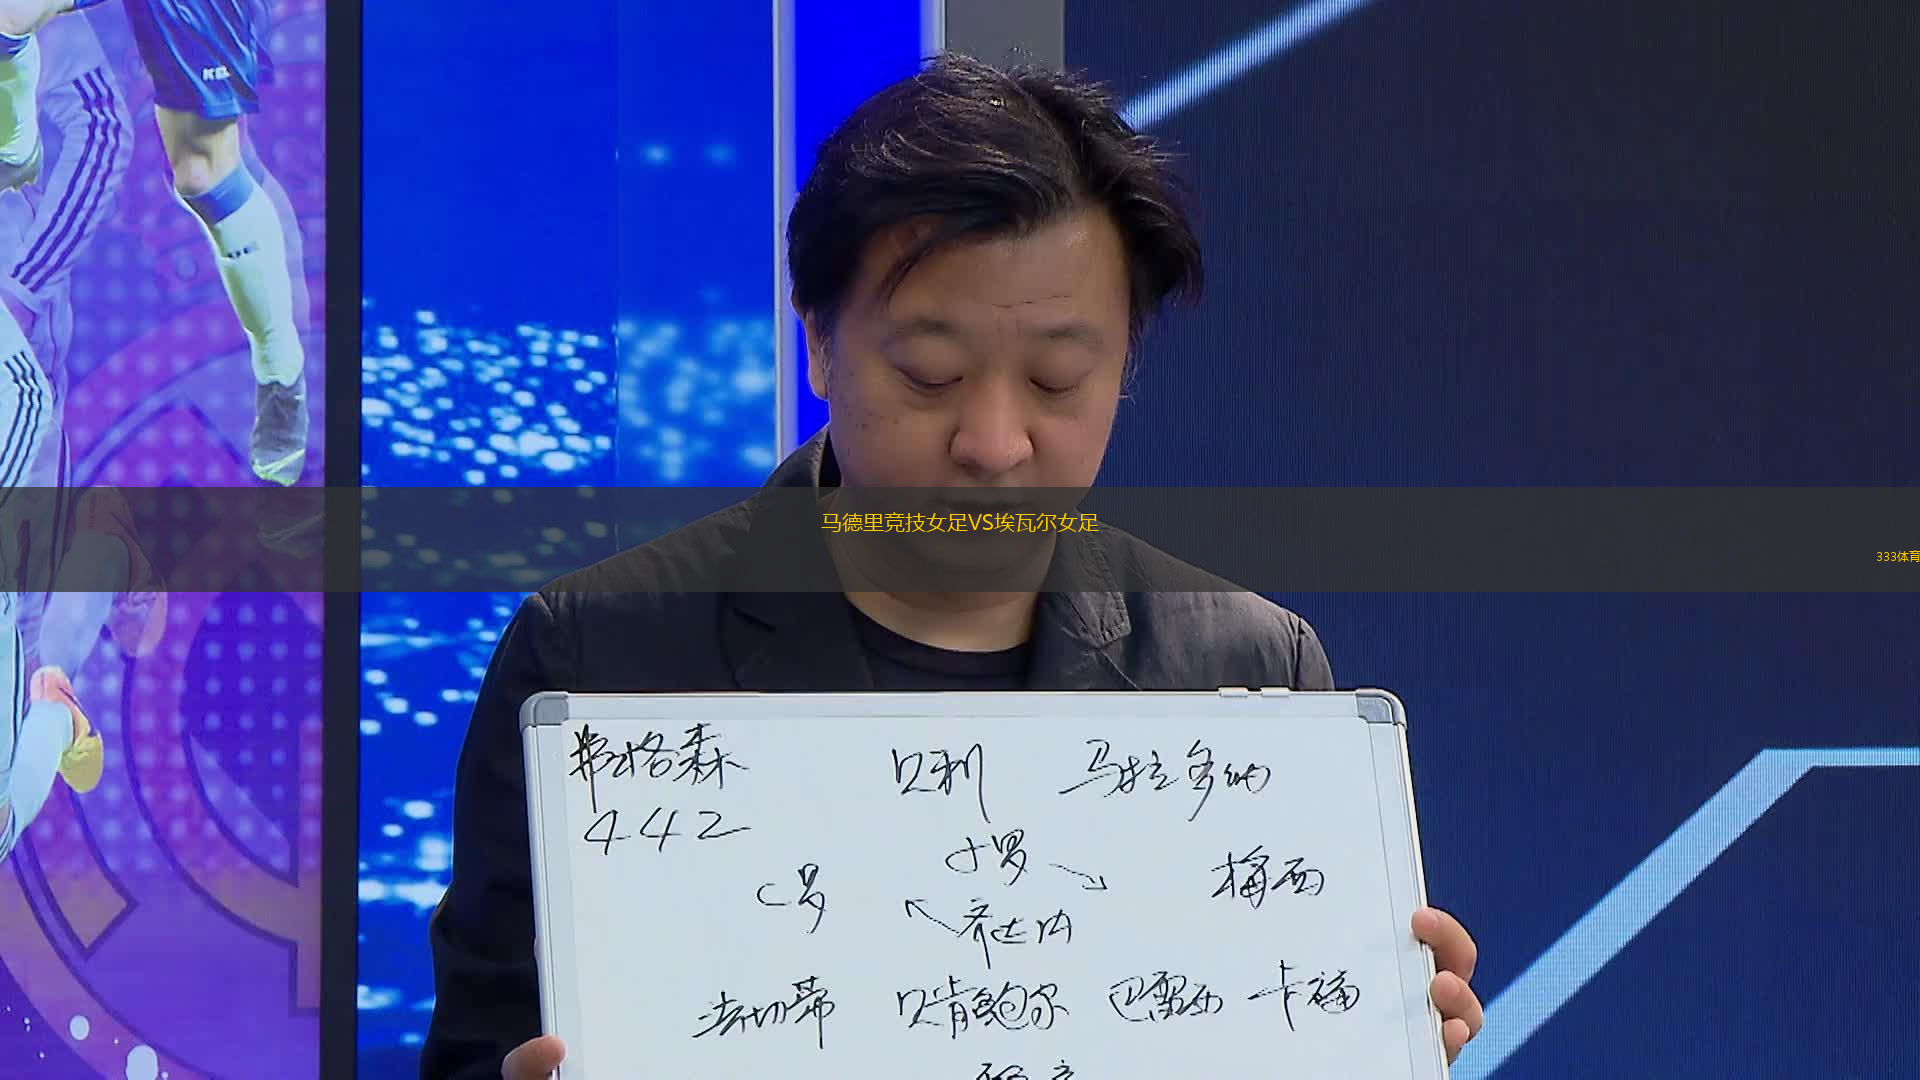 马德里竞技女足VS埃瓦尔女足
333体育
弗格森 贝利 马拉多纳
442
小罗
C罗 梅西
齐达内
法切蒂 贝肯鲍尔 巴雷西 卡福